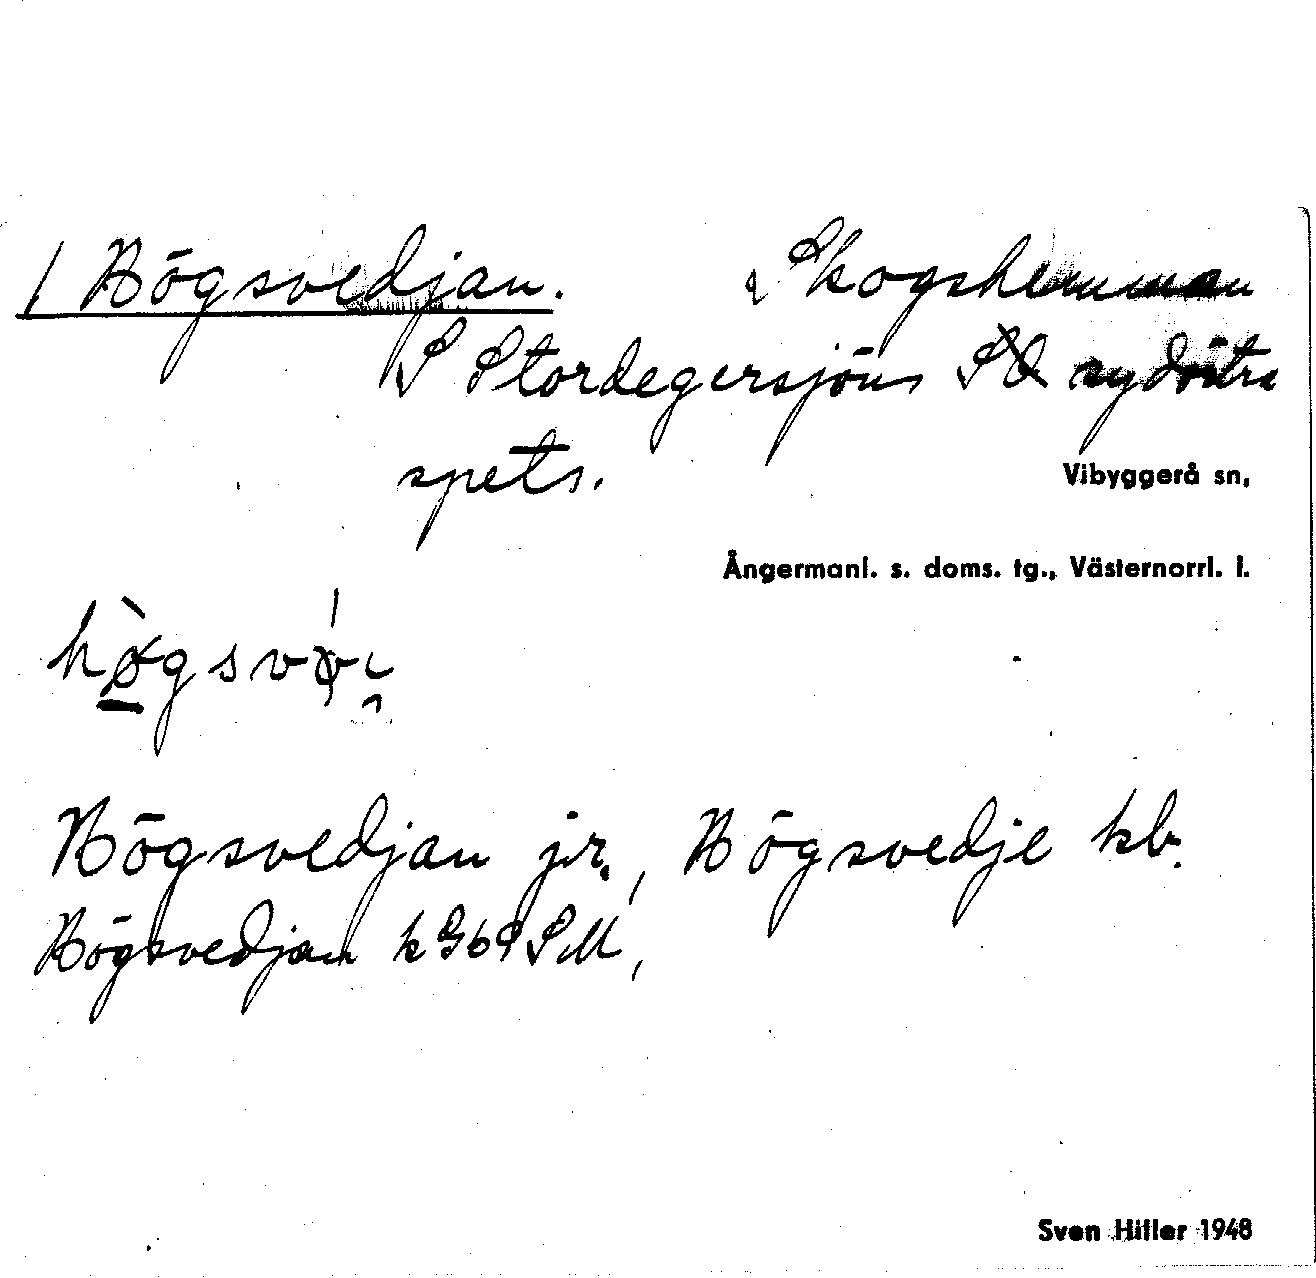 / Högsvedjan. Skogshemman
S Stordegersjöns sydöstra
spets.
Vibyggerå sn,
Ångermanl. s. doms. tg., Västernorrl. l.
Högsvedjan jr., Högsvedje kb.
Högsvedjan k G69SM,
Sven Hiller 1948